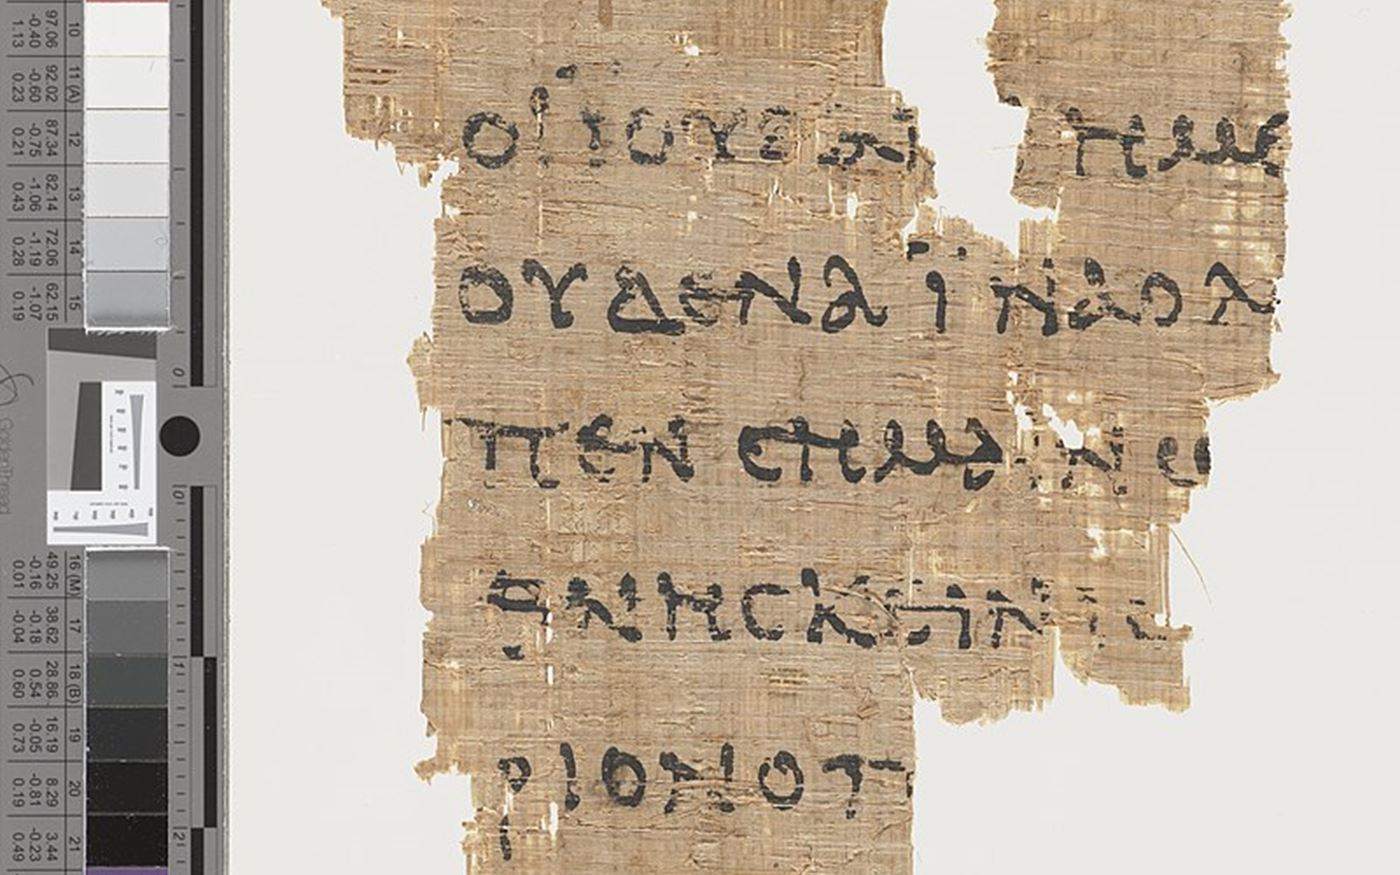 ΟΙ ΙΟΥΔΑΙ ΗΜΕ
ΟΥΔΕΝΑ ΙΝΑ Ο Λ
ΠΕΝ ϹΗΜΑΙΝΩ
ΘΝΗϹΚΕΙΝ ΙϹ
ΡΙΟΝ Ο Π
10 97.06 -0.40 1.13
11 (A) 92.02 -0.60 0.23
12 87.34 -0.75 0.21
13 82.14 -1.06 0.43
14 72.06 -1.19 0.28
15 62.15 -1.07 0.19
16 (M) 49.25 -0.16 0.01
17 38.62 -0.18 -0.04
18 (B) 28.86 0.54 0.60
19 16.19 -0.05 0.73
20 8.29 -0.81 0.19
21 3.44 -0.23 0.49
0
0
1
2
GoldenThread